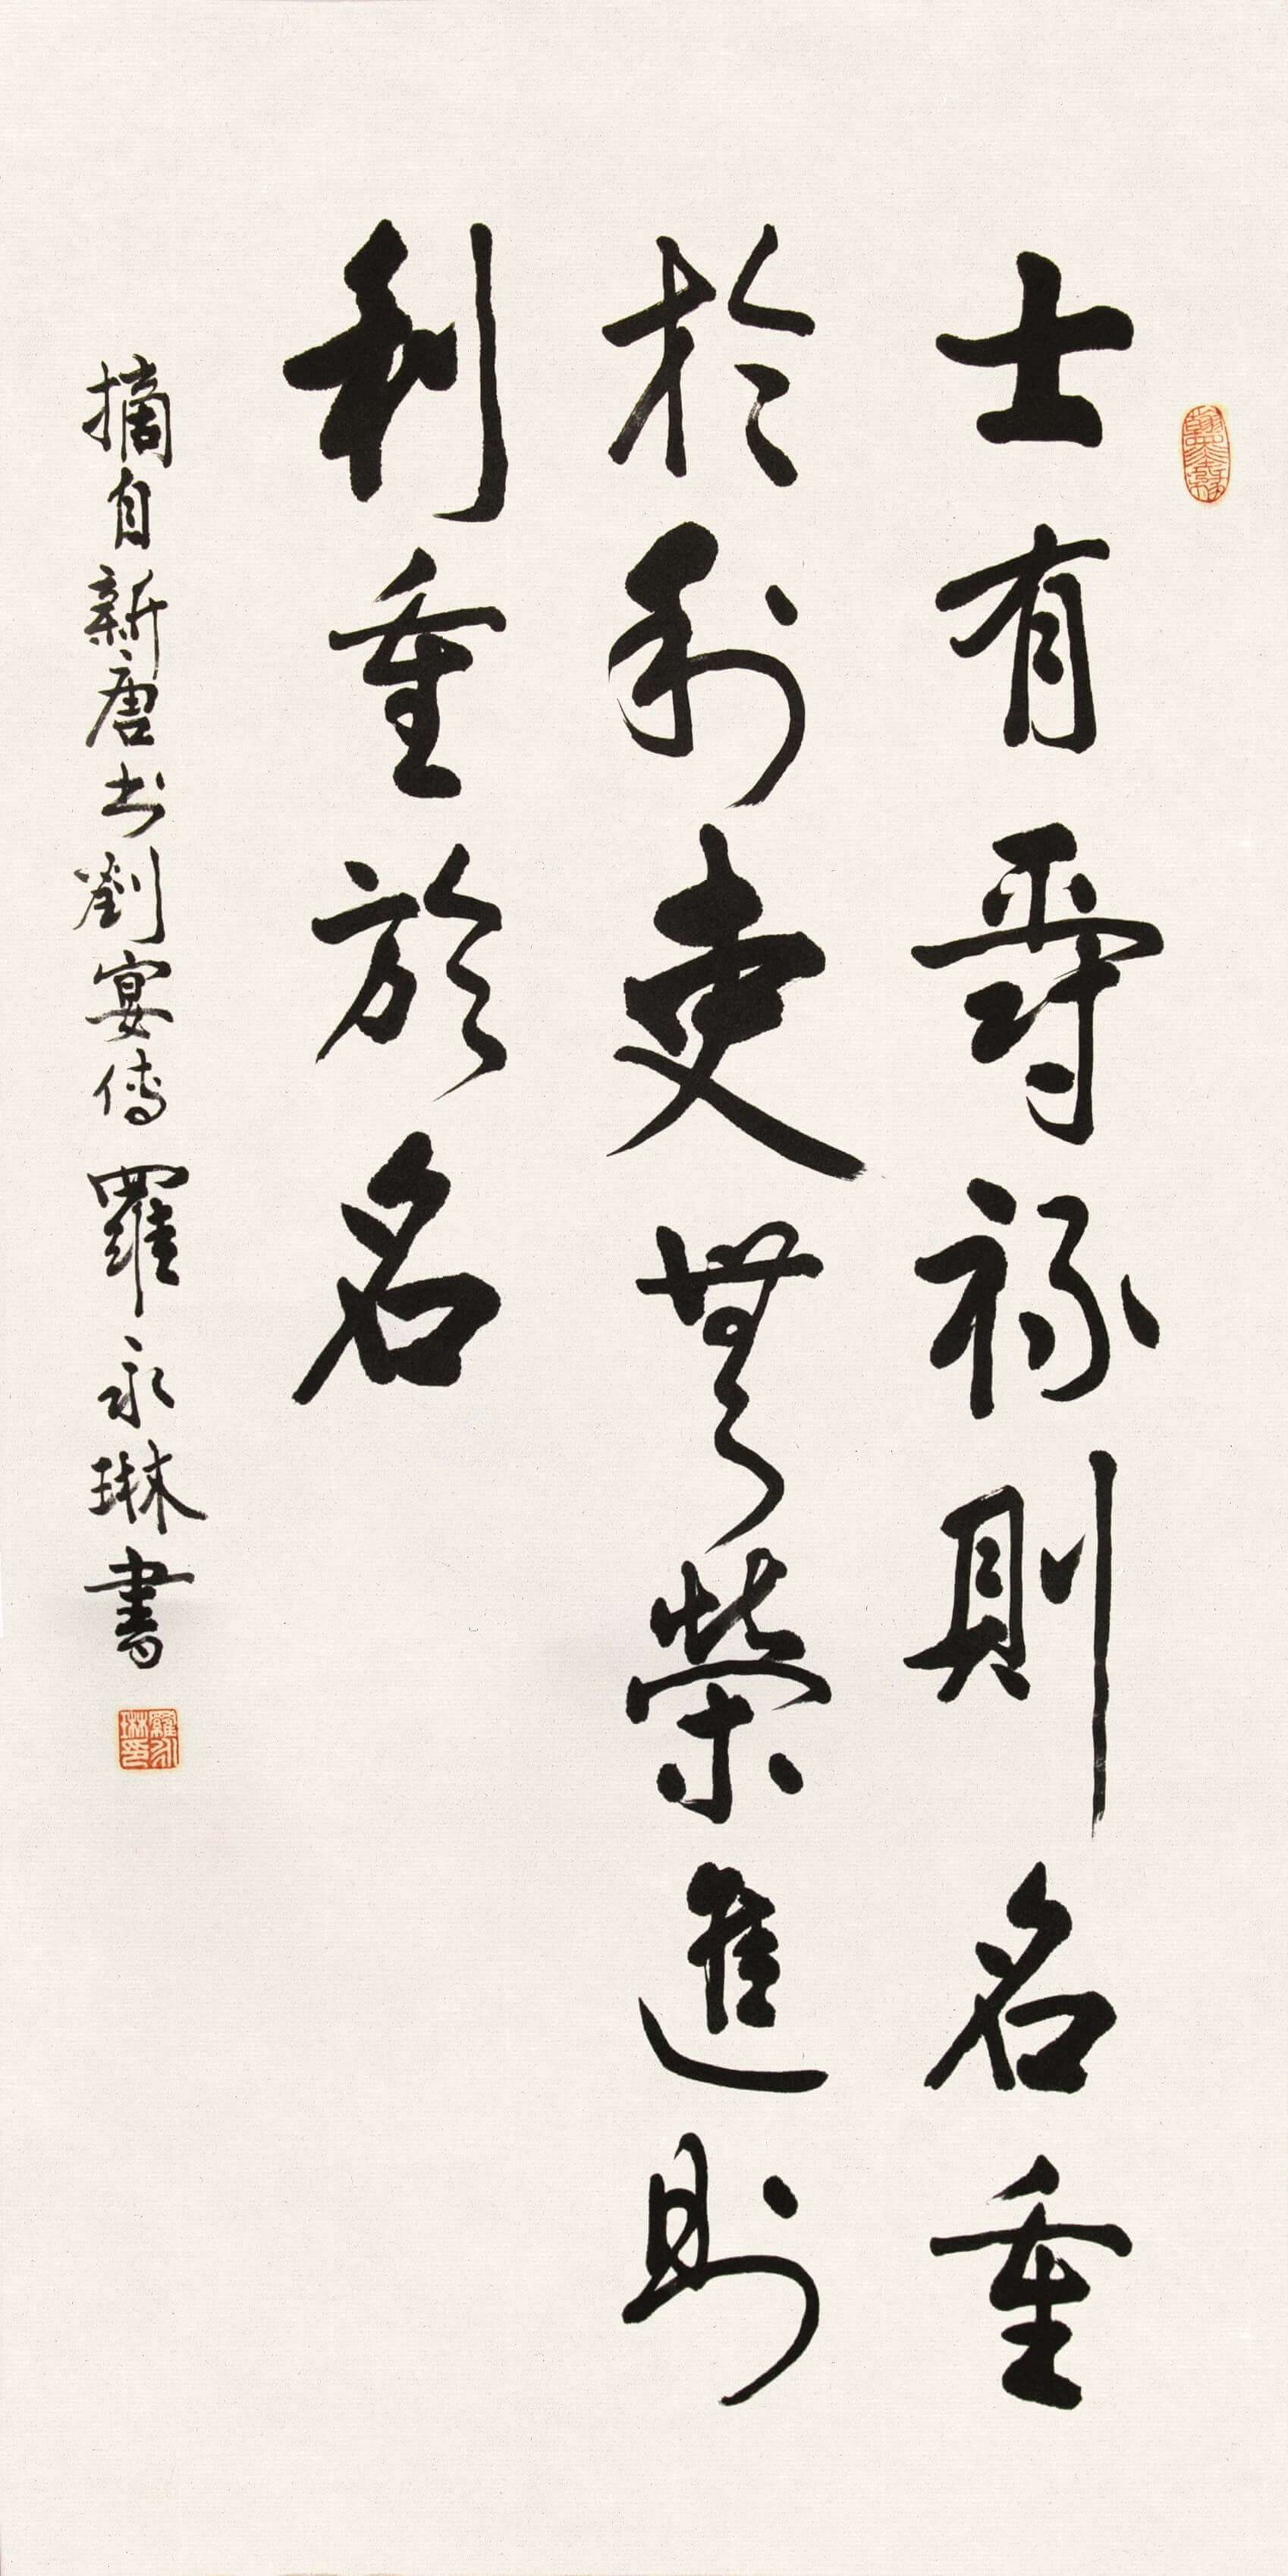 士有爵祿則名重
於利吏無榮進則
利重於名
摘自新唐书劉宴傳羅永琳書
羅永琳印